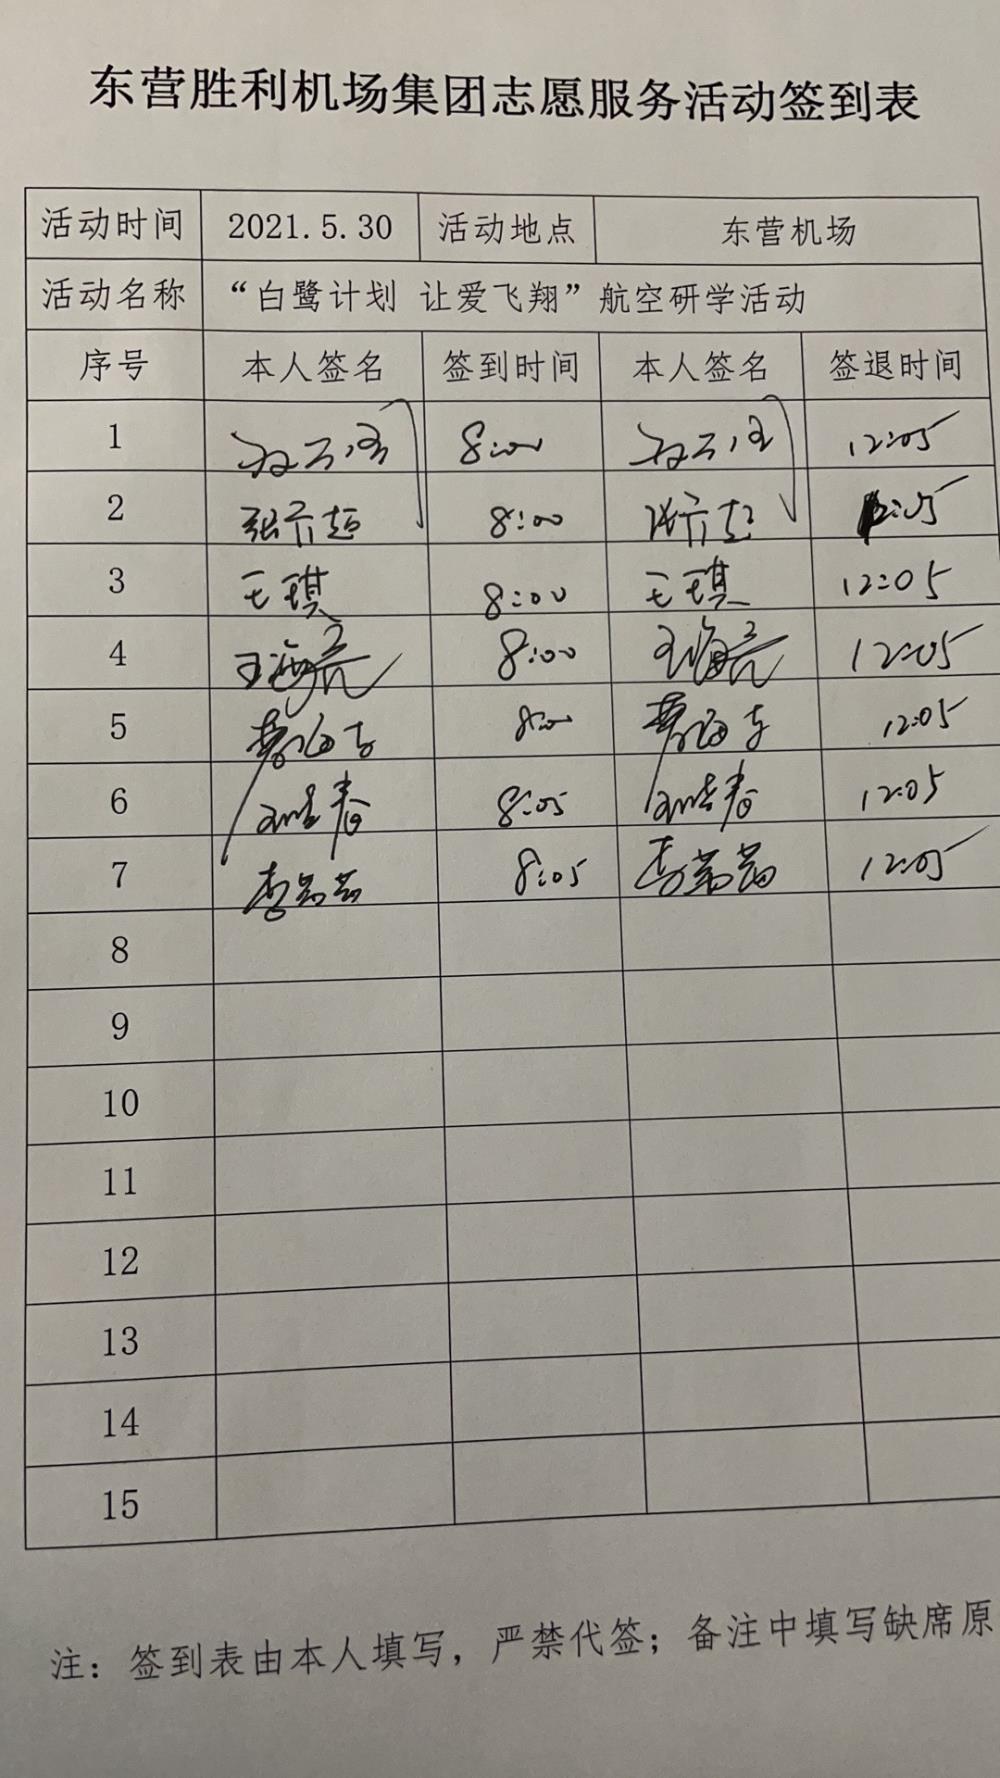 东营胜利机场集团志愿服务活动签到表
活动时间 2021.5.30 活动地点 东营机场
活动名称 “白鹭计划 让爱飞翔”航空研学活动
序号 本人签名 签到时间 本人签名 签退时间
1 8:00 12:05
2 8:00 12:05
3 王琪 8:00 王琪 12:05
4 王海亮 8:00 王海亮 12:05
5 8:00 12:05
6 8:05 12:05
7 8:05 12:05
8
9
10
11
12
13
14
15
注：签到表由本人填写，严禁代签；备注中填写缺席原